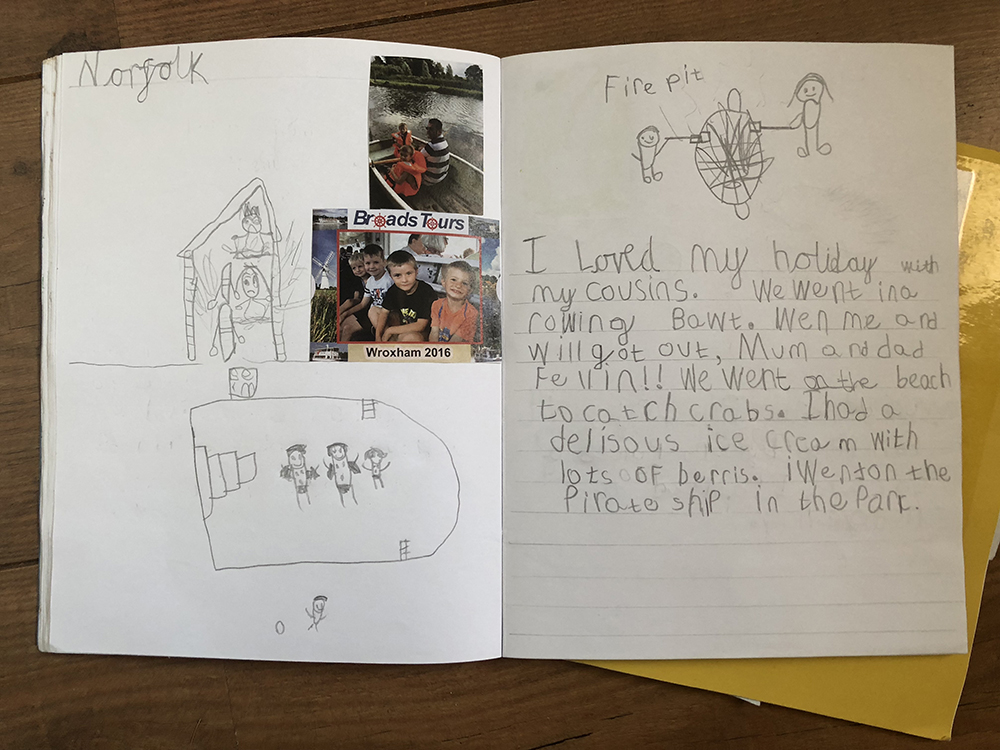 Norfolk
Broads Tours
Wroxham 2016
Fire pit
I Loved my holiday with
my cousins. We went in a
rowing Bawt. Wen me and
will got out, Mum and dad
Fell in!! We went on the beach
to catch crabs. I had a
delisous ice cream with
lots of berris. i went on the
Pirate ship in the Park.